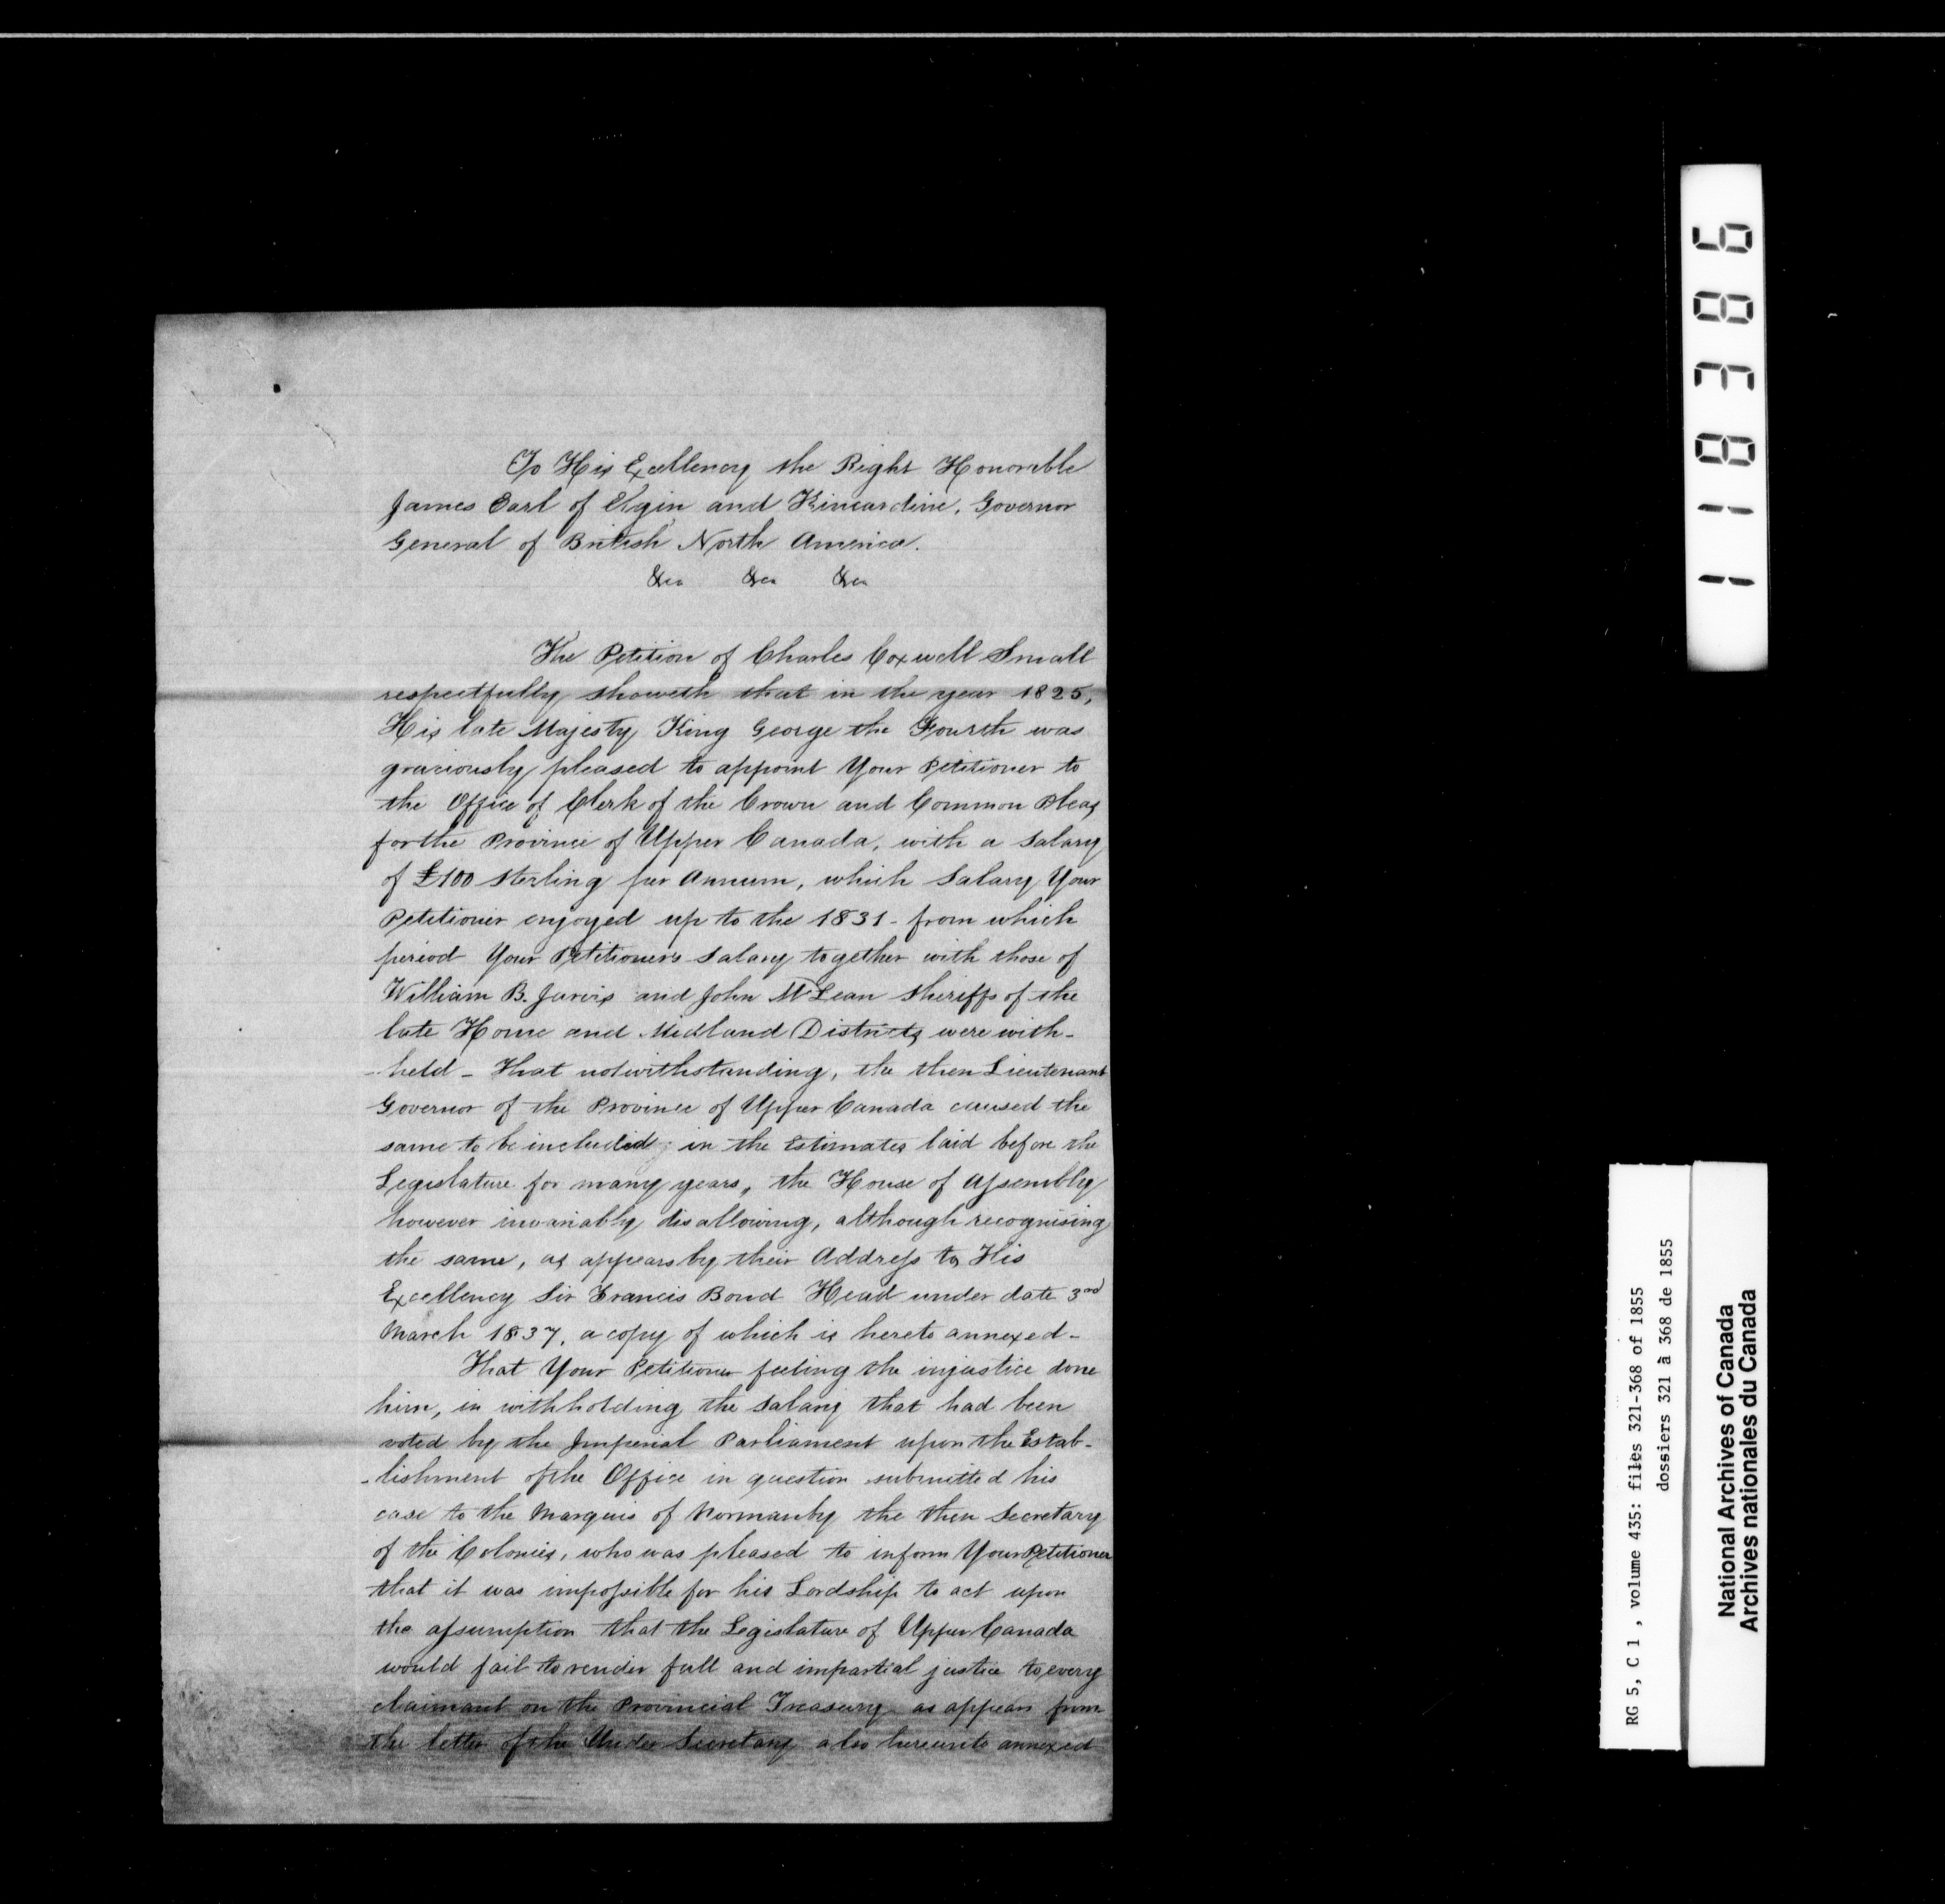 To His Excellency the Right Honorable
James Earl of Elgin and Kincardine, Governor
General of British North America.
&ca &ca &ca
The Petition of Charles Coxwell Small
respectfully showeth that in the year 1825,
His late Majesty King George the Fourth was
graciously pleased to appoint Your Petitioner to
the Office of Clerk of the Crown and Common Pleas
for the Province of Upper Canada, with a Salary
of £100 Sterling per Annum, which Salary Your
Petitioner enjoyed up to the 1831 - from which
period Your Petitioners Salary together with those of
William B. Jarvis and John McLean Sheriffs of the
late Home and Midland Districts were with-
-held - That notwithstanding, the then Lieutenant
Governor of the Province of Upper Canada caused the
same to be included, in the Estimates laid before the
Legislature for many years, the House of Assembly
however invariably disallowing, although recognising
the same, as appears by their Address to His
Excellency Sir Francis Bond Head under date 3rd
March 1837, a copy of which is hereto annexed -
That Your Petitioner feeling the injustice done
him, in withholding the Salary that had been
voted by the Imperial Parliament upon the Estab-
-lishment of the Office in question submitted his
case to the Marquis of Normanby the then Secretary
of the Colonies, who was pleased to inform Your Petitioner
that it was impossible for his Lordship to act upon
the assumption that the Legislature of Upper Canada
would fail to render full and impartial justice to every
claimant on the Provincial Treasury as appears from
the letter of the Under Secretary also hereunto annexed
118386
RG 5, C 1 , volume 435: files 321-368 of 1855
dossiers 321 à 368 de 1855
National Archives of Canada
Archives nationales du Canada